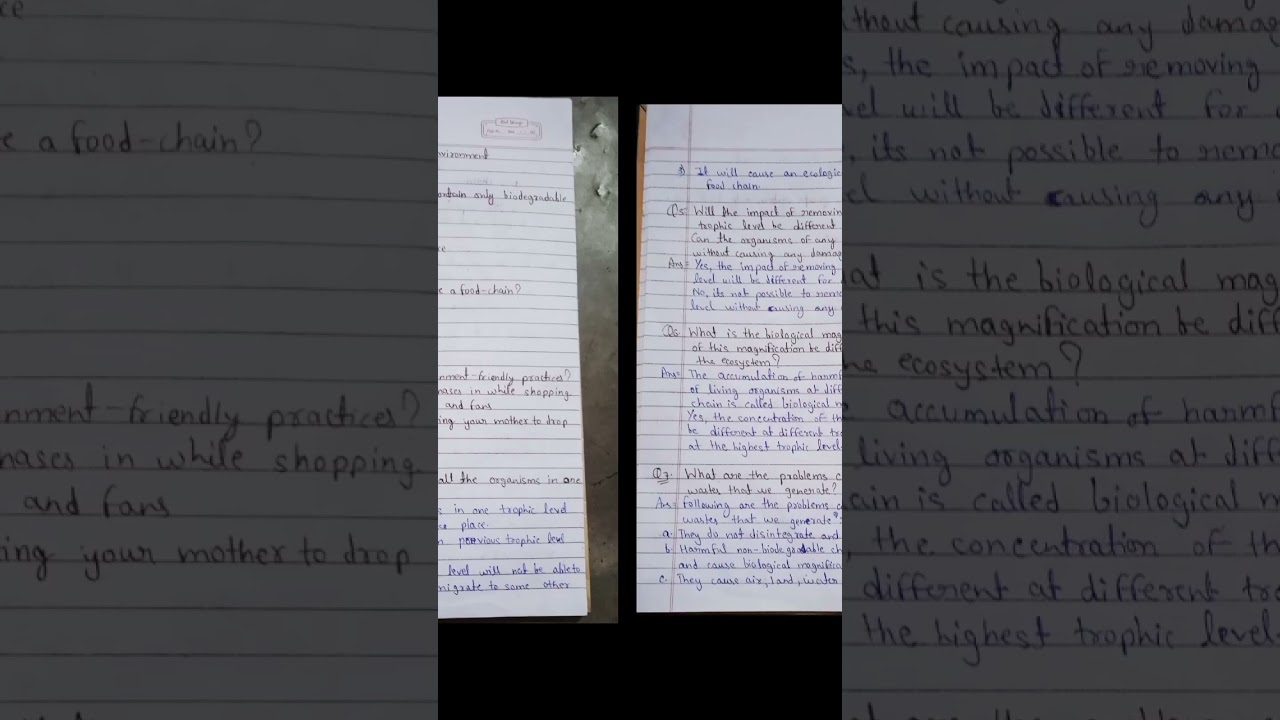 ce
e a food-chain?
nment-friendly practices?
hases in while shopping
and fans
ing your mother to drop
nvironment
ontain only biodegradable
ce
e a food-chain?
nment-friendly practices?
hases in while shopping
and fans
ing your mother to drop
all the organisms in one
s in one trophic level
ce place.
n previous trophic level
level will not be able to
migrate to some other
It will cause an ecologic
food chain.
Q5. Will the impact of removin
trophic level be different
Can the organisms of any
without causing any damag
Ans= Yes, the impact of removing
level will be different for
No, its not possible to remo
level without causing any
Q6. What is the biological mag
of this magnification be diff
the ecosystem?
Ans= The accumulation of harmf
of living organisms at diff
chain is called biological m
Yes, the concentration of th
be different at different tro
at the highest trophic level
Q7. What are the problems c
wastes that we generate?
Ans= Following are the problems c
wastes that we generate?
a. They do not disintegrate and
b. Harmful non-biodegradable ch
and cause biological magnifica
c. They cause air, land, water
ithout causing any damag
s, the impact of removing
vel will be different for
, its not possible to remo
el without causing any
at is the biological mag
this magnification be diff
he ecosystem?
accumulation of harmf
living organisms at diff
ain is called biological m
, the concentration of th
different at different tro
the highest trophic level